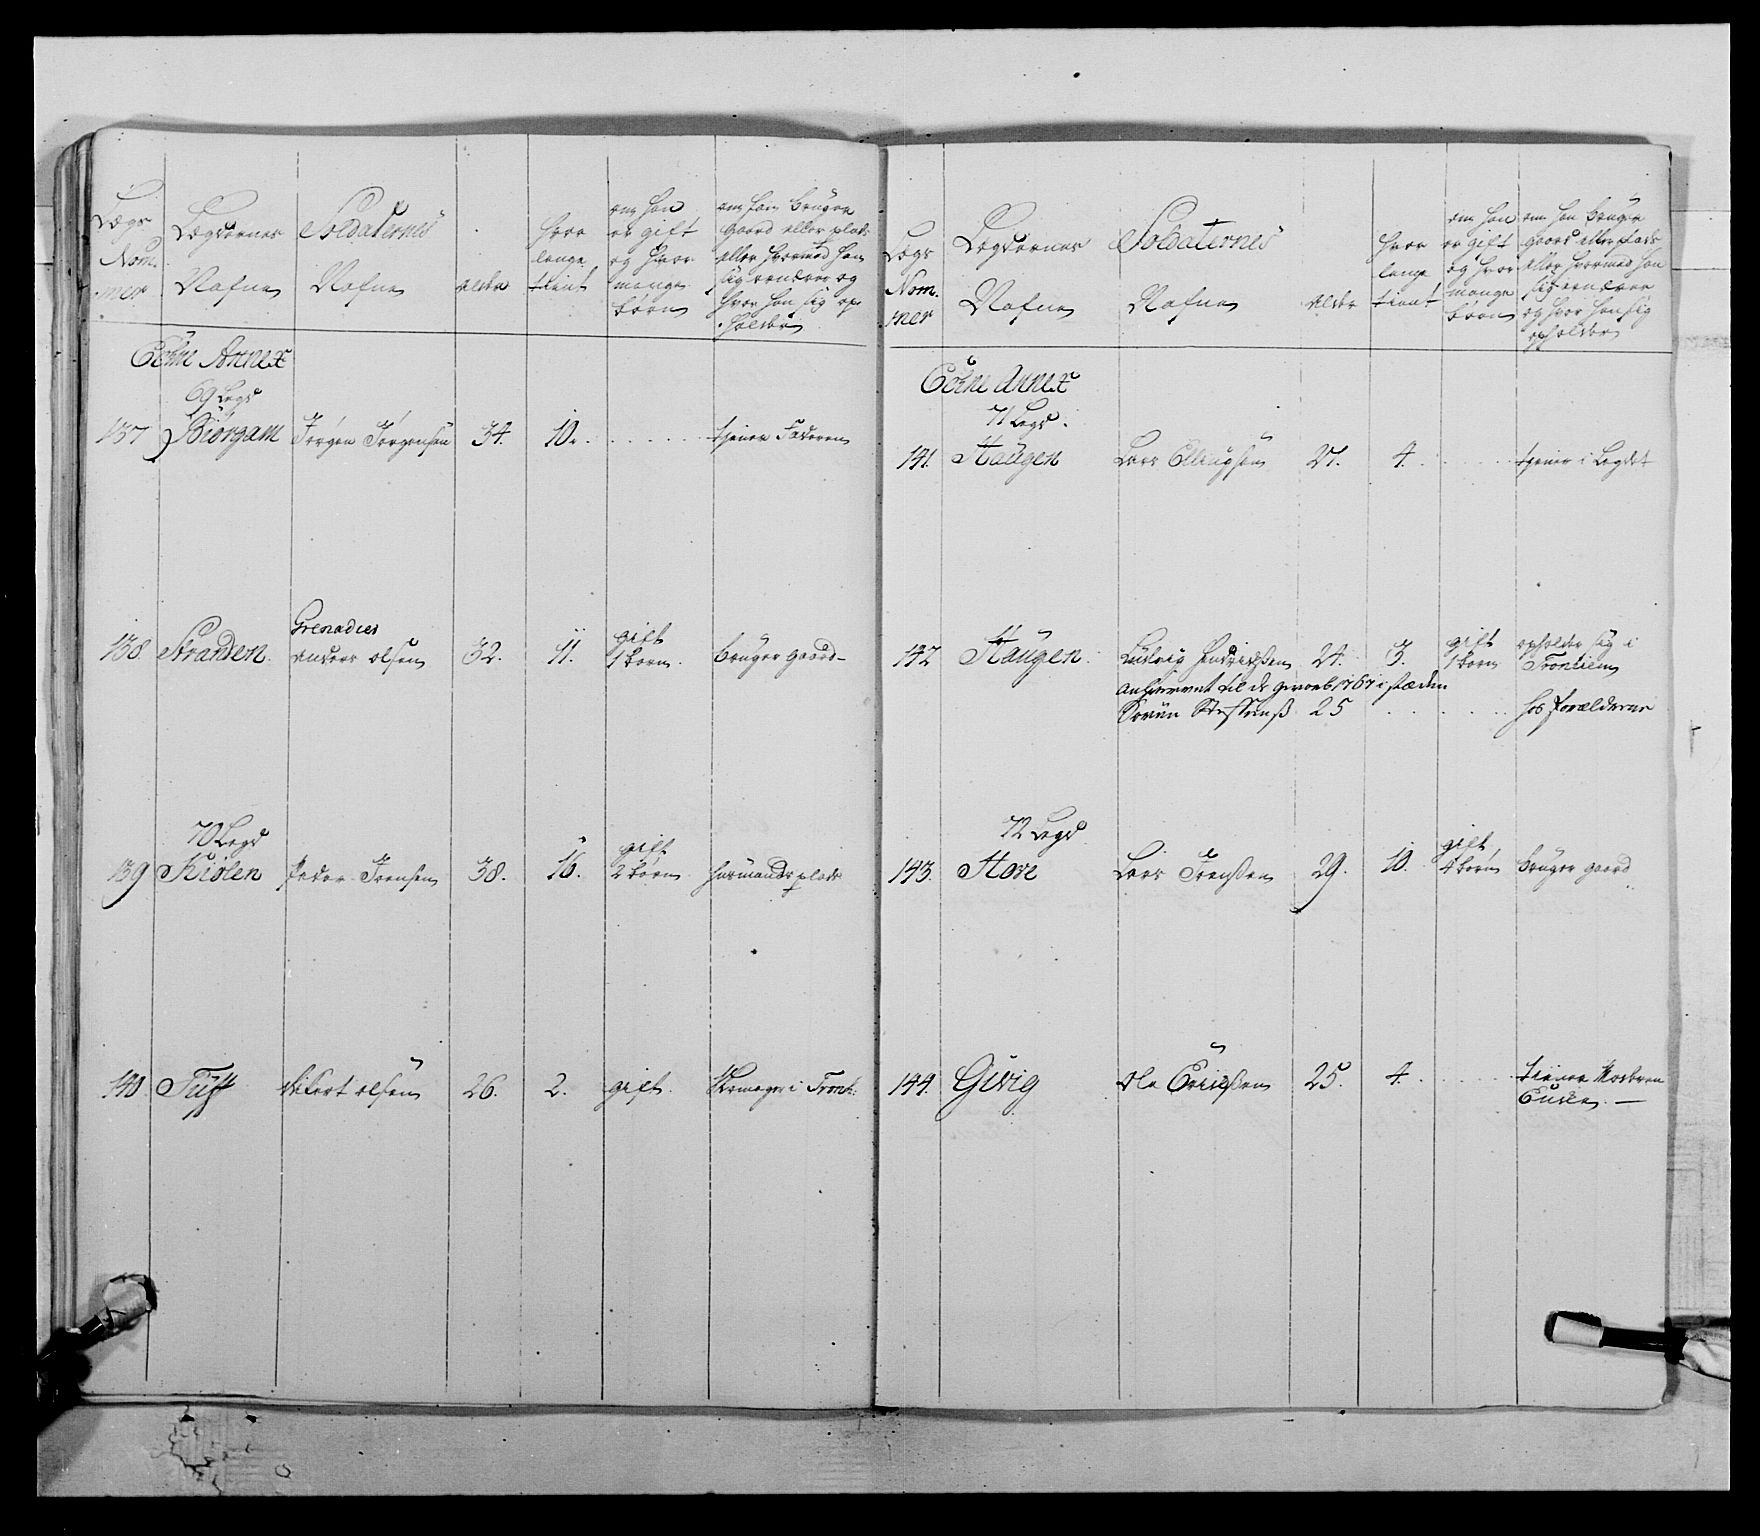 Lægs Nom.mer
Lægdernes Nafne
Soldaternes Nafne
alder
hvor længe tient
om han er gift og hvor mange börn
om han bruger gaard eller plads eller hvormed han sig ernærer og hvor han sig opholder
Annex
69 Legd
137 Biörgam Jörgen Jörgensen 34. 10. tjener Faderen
138 Stranden Grenadier Anders Olsen 32. 11. gift 1 barn bruger gaard
70 Legd
139 Kiölen Peder Jensen 38. 16. gift 2 börn huusmands plads
140. Tuff Sifert Olsen 26. 2. gift Skomager i Tronh:
Lægs Nom.mer
Lægdernes Nafne
Soldaternes Nafne
alder
hvor lenge tient
om han er gift og hvor mange börn
om han bruger gaard eller plads eller hvormed han sig ernærer og hvor han sig opholder
Annex
71 Legd.
141. Haugen Lars Ellingsen 27. 4. tjener i Legdet
142 Haugen Ludvig Hendrichsen 24. 3. gift 1 barn opholder sig i Tronhiem
til de geworb 1767 i stæden
Sören Steffens: 25 hos Forælderne
72 Legd
143. Hove Lars Jensen 29. 10. gift börn bruger gaard
144. Givig Ola Erichsen 25. 4. tiener Moderen Enken